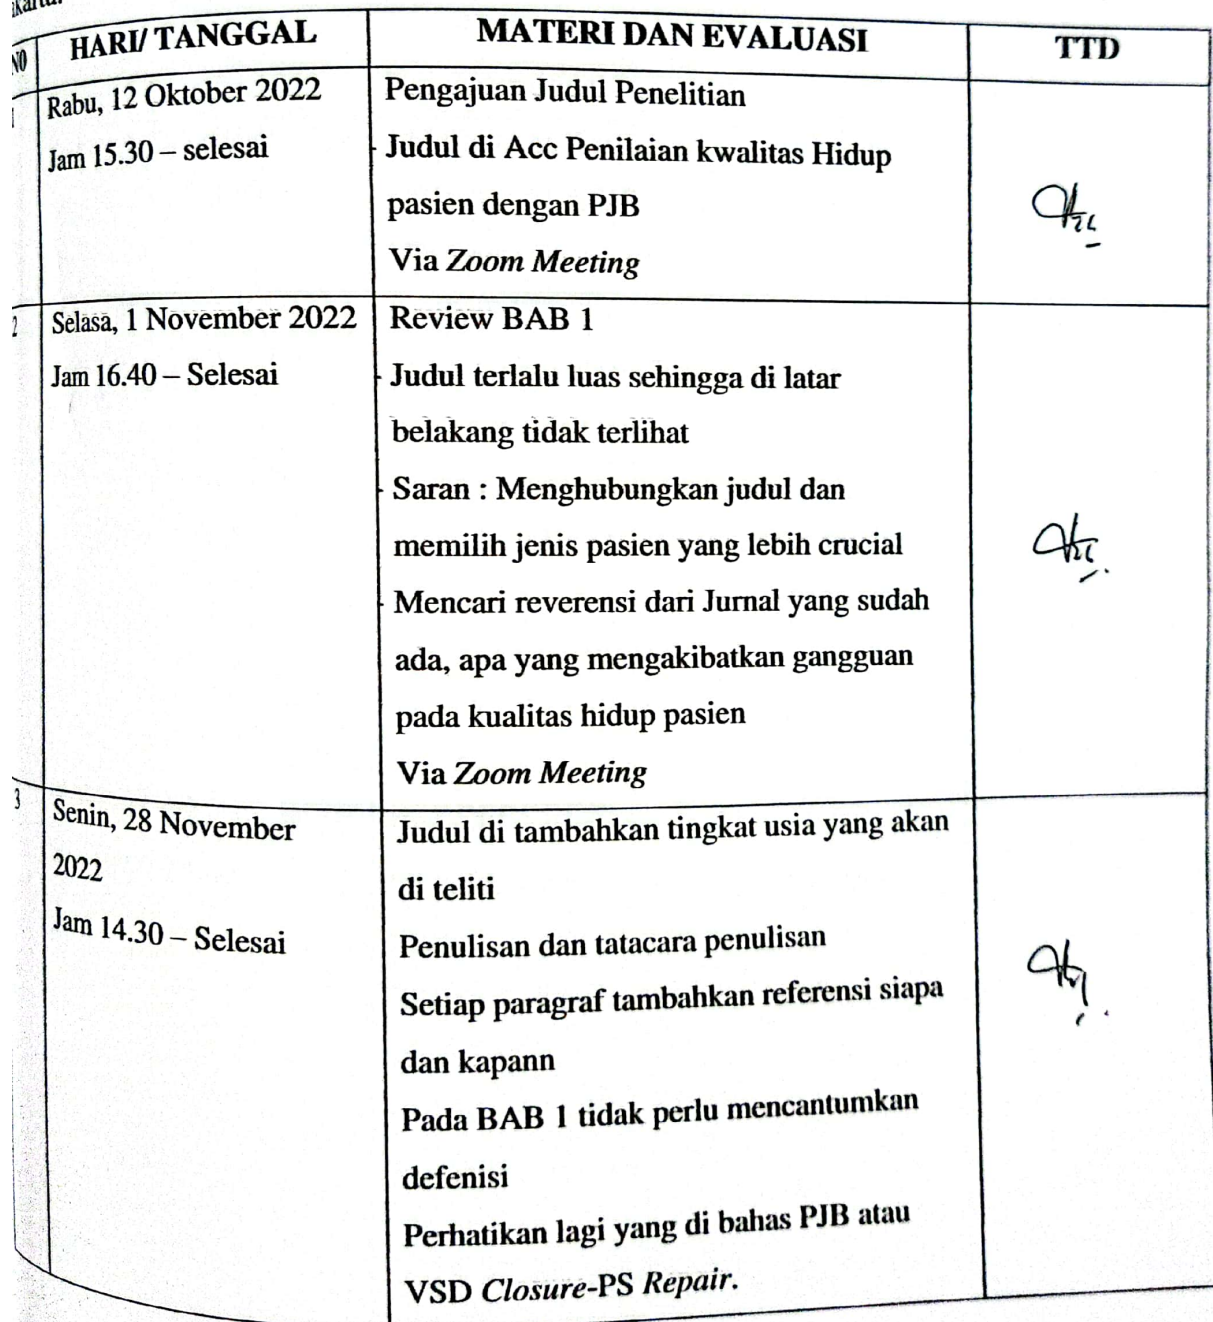 NO HARI/ TANGGAL MATERI DAN EVALUASI TTD
Rabu, 12 Oktober 2022
Jam 15.30 – selesai
Pengajuan Judul Penelitian
- Judul di Acc Penilaian kwalitas Hidup
pasien dengan PJB
Via Zoom Meeting
2
Selasa, 1 November 2022
Jam 16.40 – Selesai
Review BAB 1
- Judul terlalu luas sehingga di latar
belakang tidak terlihat
- Saran : Menghubungkan judul dan
memilih jenis pasien yang lebih crucial
- Mencari reverensi dari Jurnal yang sudah
ada, apa yang mengakibatkan gangguan
pada kualitas hidup pasien
Via Zoom Meeting
3
Senin, 28 November
2022
Jam 14.30 – Selesai
Judul di tambahkan tingkat usia yang akan
di teliti
Penulisan dan tatacara penulisan
Setiap paragraf tambahkan referensi siapa
dan kapann
Pada BAB 1 tidak perlu mencantumkan
defenisi
Perhatikan lagi yang di bahas PJB atau
VSD Closure-PS Repair.